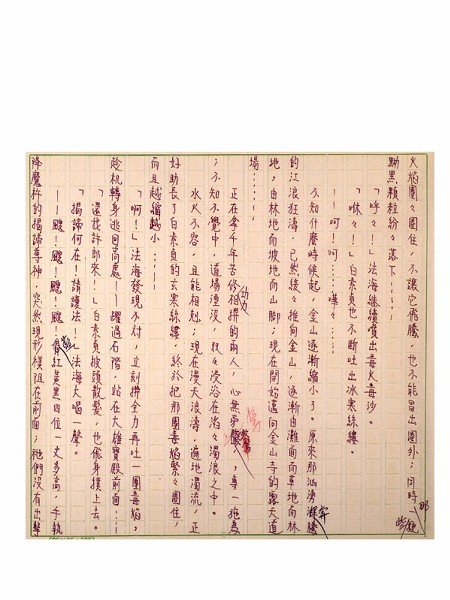 火焰團々圍住，不讓它飛騰，也不能冒出圈外；同時，那些鐃
黝黑顆粒紛々落下‥‥‥
「呼々！」法海繼續賣出毒火毒沙。
「咻々！」白素貞也不斷吐出冰寒絲縷。
—呵！呵‥‥嘿々‥‥
不知什麼時候起，金山逐漸縮小了。原來那洶湧
的江浪狂濤，已然緩々推向金山，逐漸由灘面而草地而林
地，由林地而坡地而山腳；現在開始邁向金山寺的露天道
場‥‥‥，
正在拿千年苦修相拼的兩人，心無旁鶩，專一施為
；不知不覺中，道場湮沒，雙々浸浴在滔々濁浪之中。
水火不容，且能相剋；現在漫天浪濤，遍地濁流，正
好助長了白素貞的玄寒絲縷，終於把那團毒焰緊々圈住，
而且越縮越小‥‥
「啊！」法海發現不對，立刻拼全力再吐一團毒焰，
趁机轉身逃回高處—躍過石階，站在大雄寶殿前面‥‥
「還我許郎來！」白素貞披頭散髮，也傷身撲上去。
「揭諦何在！請護法！」法海大喝一聲。
—颼！颼！颼！颼！藍紅黃黑四位一丈多高，手執
降魔杵的揭諦尊神，突然現形橫阻在前面；祂們沒有出擊